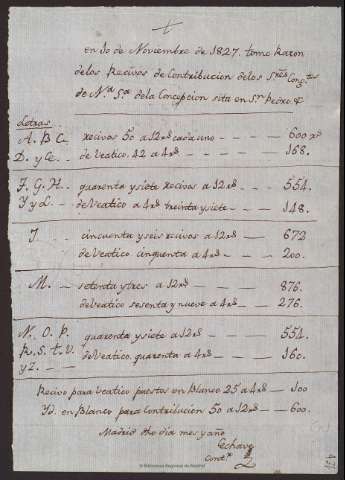 +
en 10 de Noviembre de 1827. tome Razon
delos Recivos de Contribucion delos S.res Cong.tes
de N.a S.a dela Concepcion sita en S.n Pedro. &
Letras
A. B C. recivos 50 a 12 rs cada uno — 600 rs
D. y Ce. — de Veatico. 42 a 4 rs — 168.
F. G. H. quarenta y siete recivos a 12 rs — 554.
Y y L. — de Veatico a 4 rs treinta y siete — 148.
J cincuenta y seis recivos a 12 rs — 672
de Veatico cinquenta a 4 rs — 200.
M. — setenta y tres a 12 rs — 876.
de Veatico sesenta y nueve a 4 rs — 276.
N. O. P. quarenta y siete a 12 rs — 554.
R. S. t. V. de Veatico. quarenta a 4 rs — 160.
y Z. —
Recivo para Veatico puestos en Blanco 25 a 4 rs — 100
Yd. en Blanco para Contribucion 50 a 12 rs — 600.
Madrid dho dia mes y año
Echave
Cont.r
© Biblioteca Regional de Madrid